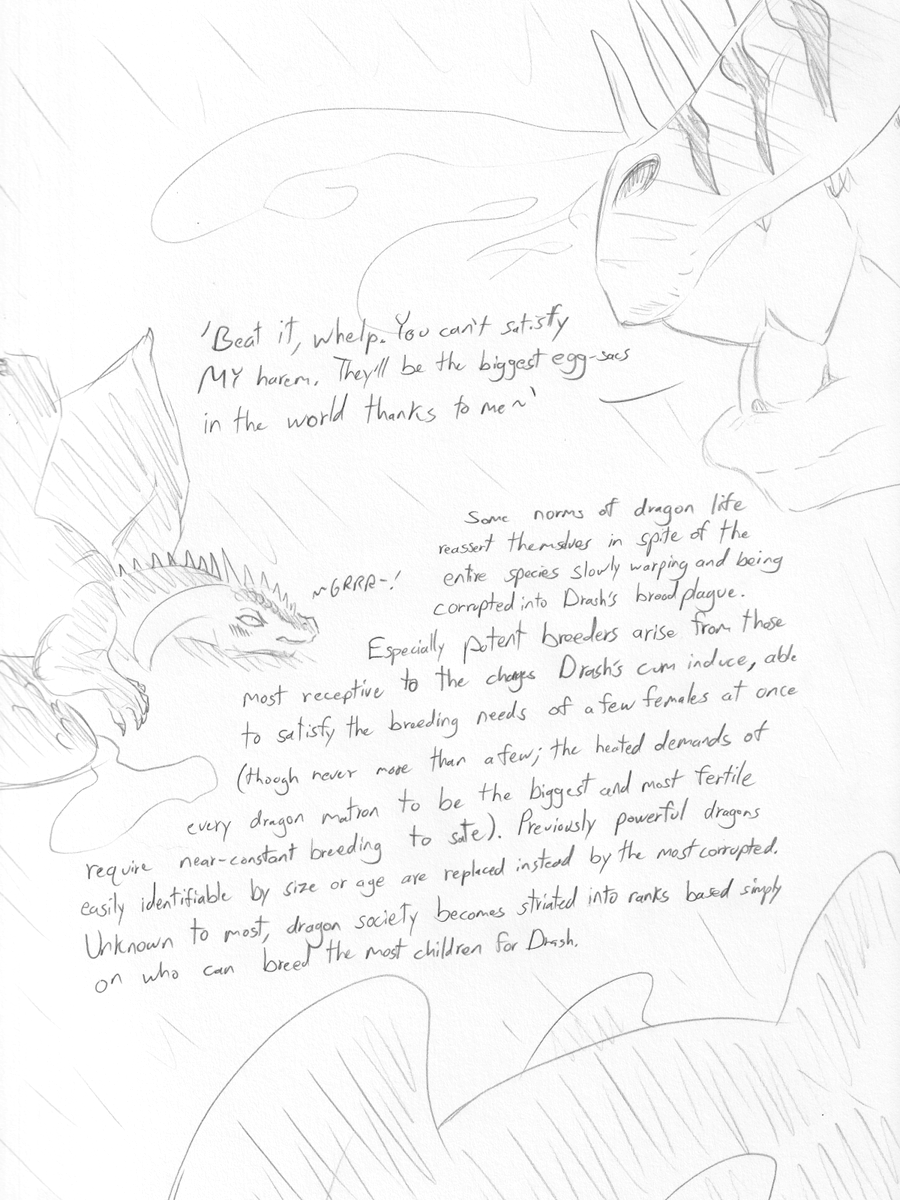 'Beat it, whelp. You can't satisfy
MY harem. They'll be the biggest egg-sacs
in the world thanks to me~'
~GRRR~!
Some norms of dragon life
reassert themselves in spite of the
entire species slowly warping and being
corrupted into Drash's brood plague.
Especially potent breeders arise from those
most receptive to the changes Drash's cum induce, able
to satisfy the breeding needs of a few females at once
(though never more than a few; the heated demands of
every dragon matron to be the biggest and most fertile
require near-constant breeding to sate). Previously powerful dragons
easily identifiable by size or age are replaced instead by the most corrupted.
Unknown to most, dragon society becomes striated into ranks based simply
on who can breed the most children for Drash.